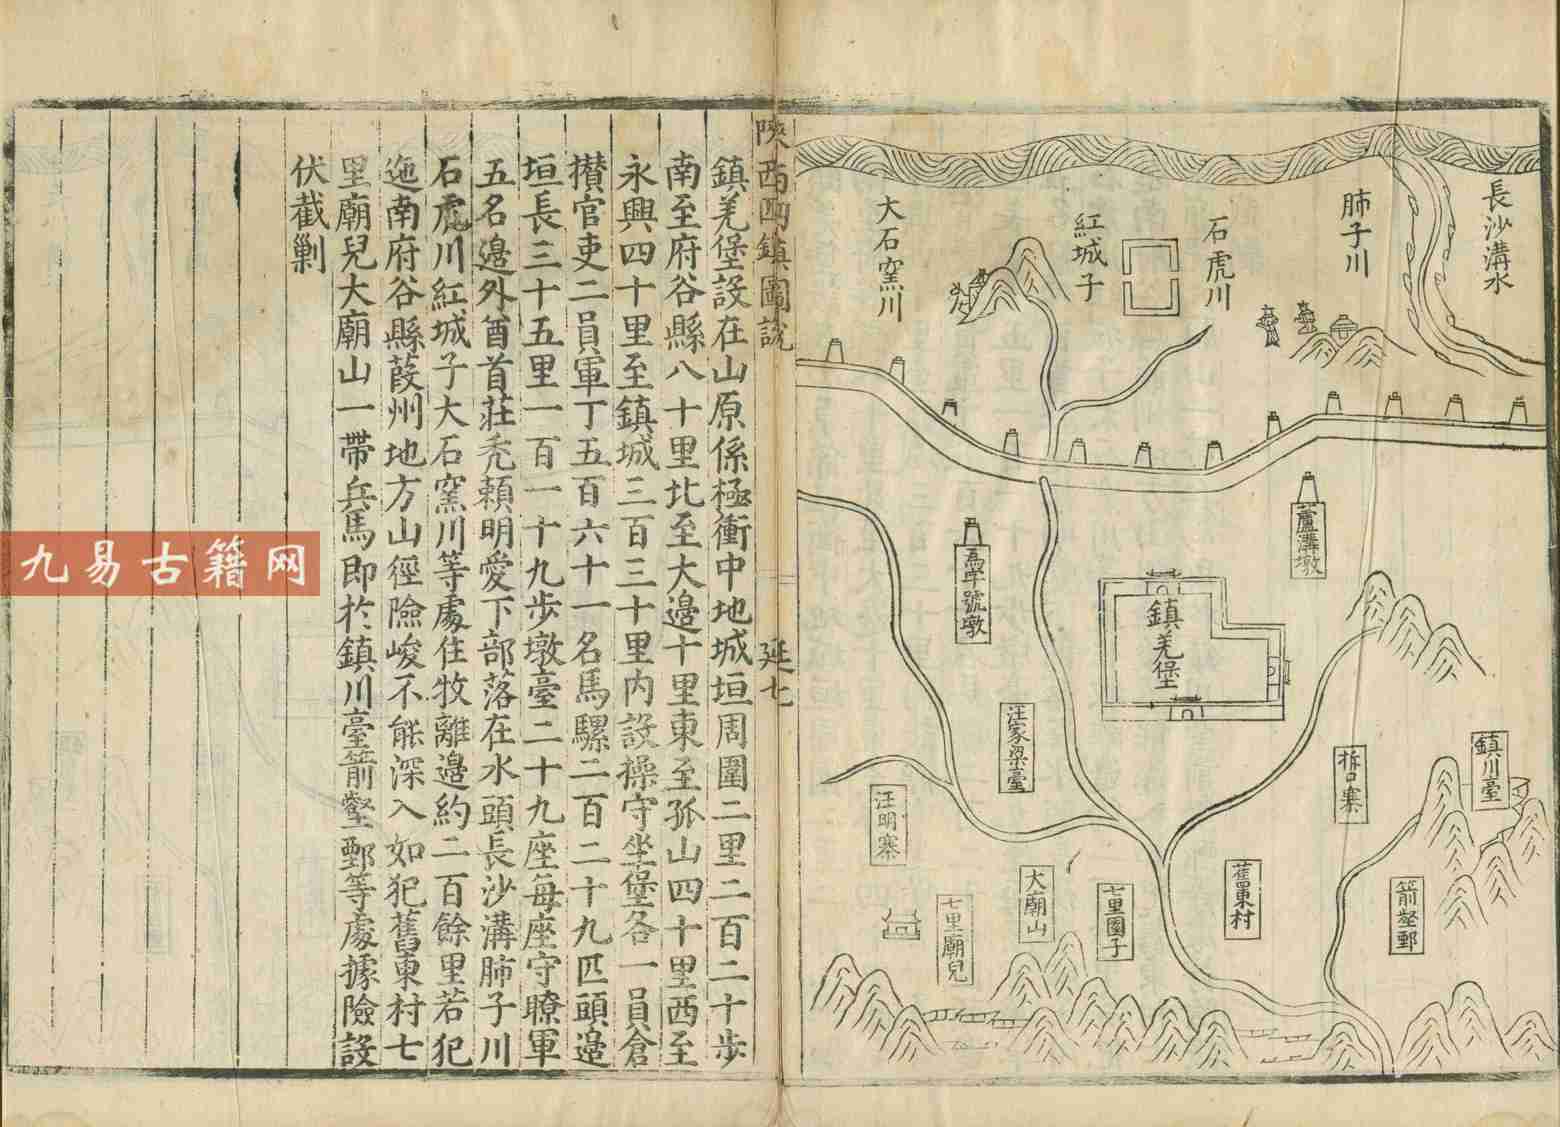 長沙溝水
肺子川
石虎川
紅城子
大石窯川
蘆溝墩
馬字號墩
鎮羌堡
汪家梁臺
鎮川臺
柝口寨
汪明寨
舊東村
箭壑鄄
七里園子
大廟山
七里廟兒
陝西四鎮圖說
延七
鎮羌堡設在山原係極衝中地城垣周圍二里二百二十步
南至府谷縣八十里北至大邊十里東至孤山四十里西至
永興四十里至鎮城三百三十里内設操守坐堡各一員倉
攅官吏二員軍丁五百六十一名馬騾二百二十九匹頭邊
垣長三十五里一百一十九步墩臺二十九座每座守瞭軍
五名邊外酋首莊禿頼明愛下部落在水頭長沙溝肺子川
石虎川紅城子大石窯川等處住牧離邊約二百餘里若犯
迤南府谷縣葭州地方山徑險峻不能深入如犯舊東村七
里廟兒大廟山一帶兵馬即於鎮川臺箭壑鄄等處據險設
伏截剿
九易古籍网